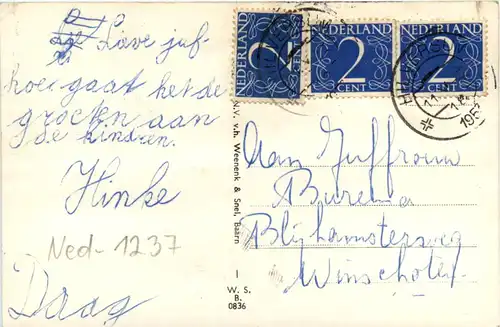 Lieve juf
hoe gaat het de
groeten aan
de kinderen.
Hinke
Ned-1237
Daag
N.V. v.h. Weenenk & Snel, Baarn
W. S.
B.
0836
NEDERLAND
2
CENT
NEDERLAND
2
CENT
NEDERLAND
2
CENT
Aan Juffrouw
Burema
Blijhamsterweg
Winschoten